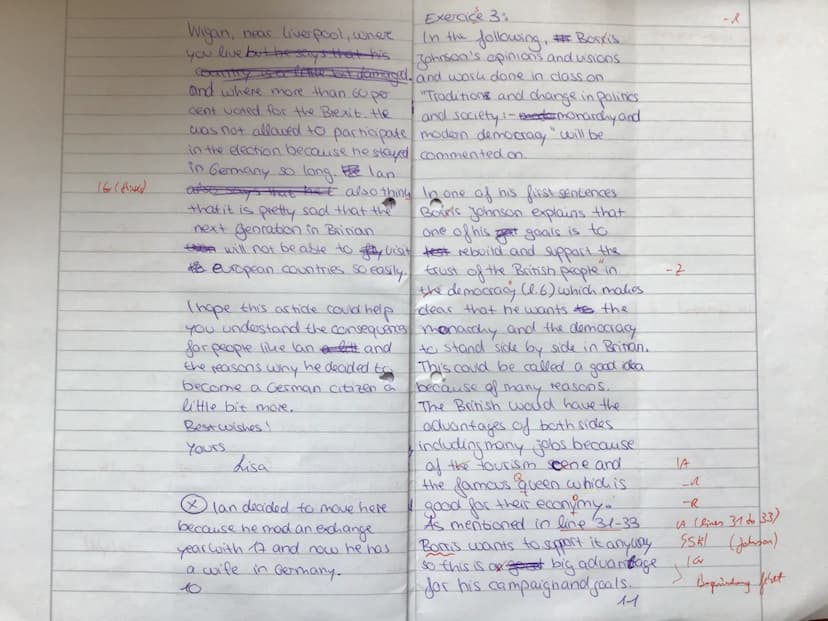 Wigan, near Liverpool, where
you live but he says that his
country is a little bit damaged.
and where more than 60 per
cent voted for the Brexit. He
was not allowed to participate
in the election because he stayed
in Germany so long. Ian
16 (find)
also says that he also thinks
that it is pretty sad that the
next genration in Britian
will not be able to visit
european countries so easily.
I hope this article could help
you understand the consequens
for people like Ian and
the reasons why he decided to
become a German citizen a
little bit more.
Best wishes!
Yours
Lisa
X Ian decided to move here
because he mad an exchange
year with 17 and now he has
a wife in Germany.
10
Exercise 3:
-R
In the following, Borris
Johnson's opinions and visions
and work done in class on
"Traditions and change in politics
and society:- monarchy and
modern democracy" will be
commented on.
In one of his first sentences
Borris Johnson explains that
one of his goals is to
rebuild and support the
trust of the British people "in
-Z
the democracy" (l.6) which makes
clear that he wants the
monarchy and the democracy
to stand side by side in Britian.
This could be called a good idea
because of many reasons.
The British would have the
advantages of both sides
including many jobs because
of the tourism scene and
IA
the famous queen which is
-R
good for their economy.
-R
As mentioned in line 31-33
IA (lines 31 to 33)
Borris wants to support it anyway
SSt/ (Johnson)
so this is a big advantage
for his campaign and goals.
Begründung fehlt
11